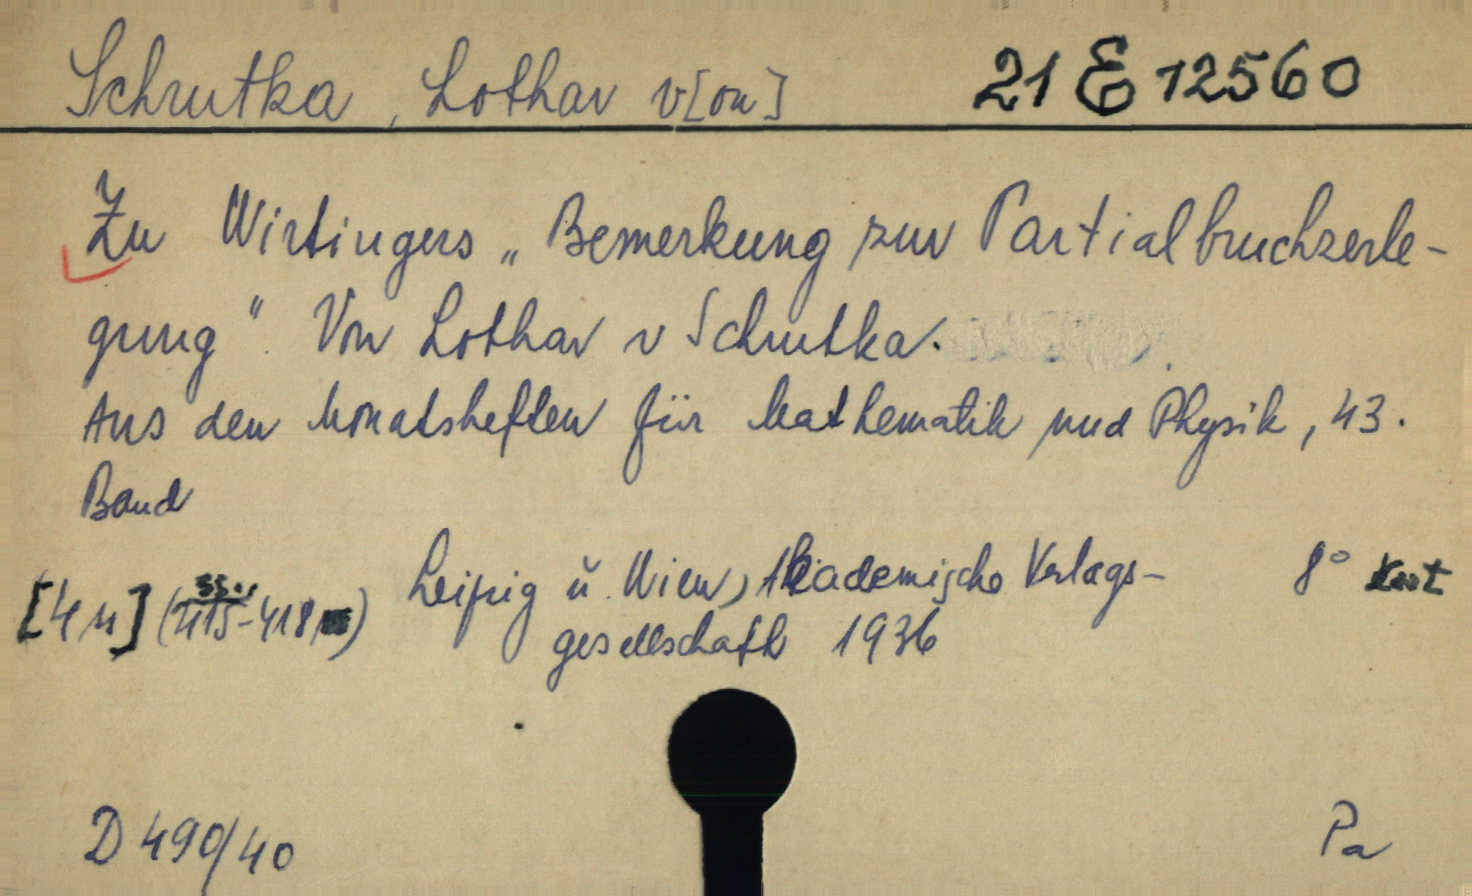 Schrutka, Lothar v[on] 21 E 12560
Zu Wirtingers „Bemerkung zur Partialbruchzerle-
gung". Von Lothar v Schrutka.
Aus den Monatsheften für Mathematik und Physik, 43.
Band
Leipzig u. Wien, Akademische Verlags- 8° Kart
(415-418)
gesellschaft 1936
D 490/40 Pa